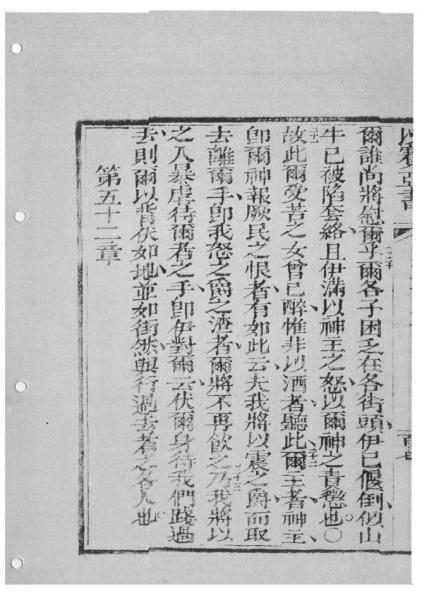 以賽亞書
爾誰尚將慰爾乎爾各子困乏在各街頭伊已偃倒似山
牛已被陷套絡且伊滿以神主之怒以爾神之責懲也〇
故此爾受苦之女曾已醉惟非以酒者聽此爾主者神主
即爾神報厥民之恨者有如此云夫我將以震之爵而取
去離爾手即我怒之爵之渣者爾將不再飲之乃我將以
之入暴虐待爾者之手即伊對爾云伏爾身待我們踐過
去則爾以背伏如地並如街然與行過去者之各人也
第五十二章